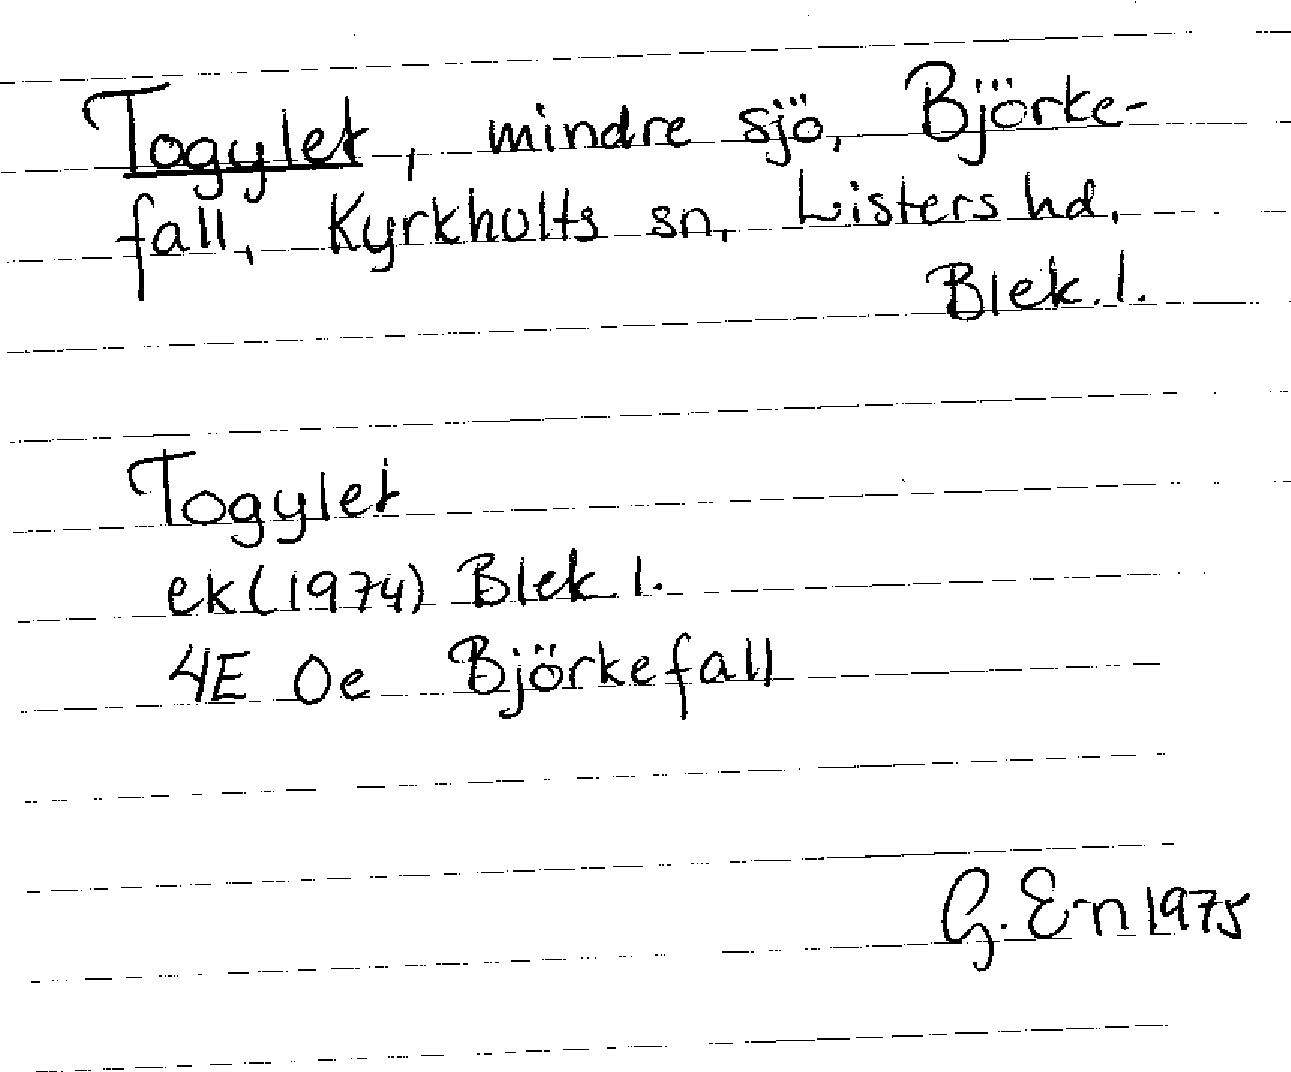 Togylet, mindre sjö, Björke-
fall, Kyrkhults sn, Listers hd,
Blek. l.
Togylet
ek (1974) Blek l.
4E 0e Björkefall
G. E-n 1975